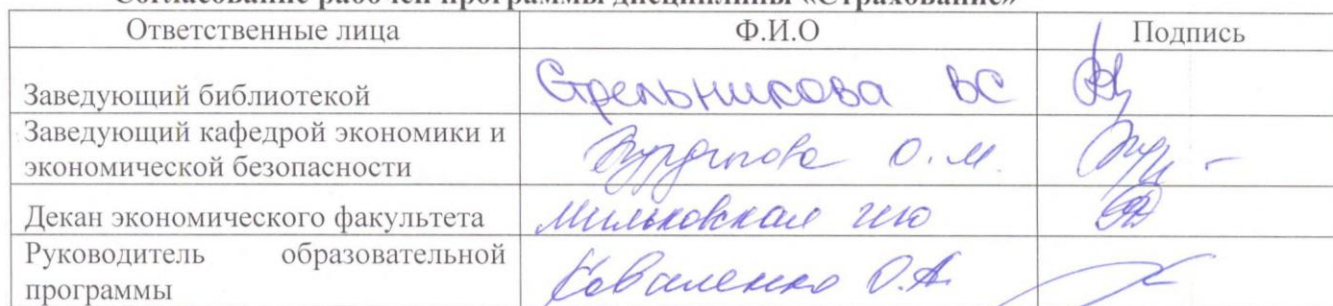 Согласование рабочей программы дисциплины «Страхование»
Ответственные лица Ф.И.О Подпись
Заведующий библиотекой Стрельникова ВС
Заведующий кафедрой экономики и
экономической безопасности О.М.
Декан экономического факультета Мильковская
Руководитель образовательной
программы Коваленко О.А.